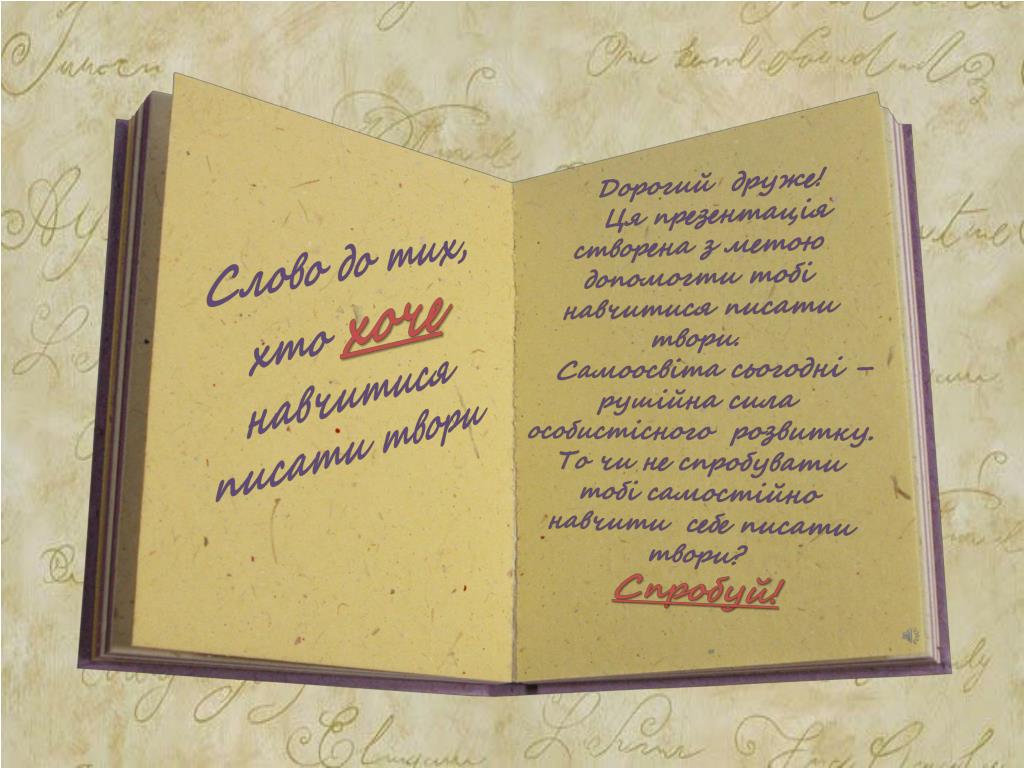 Слово до тих,
хто хоче
навчитися
писати твори
Дорогий друже!
Ця презентація
створена з метою
допомогти тобі
навчитися писати
твори.
Самоосвіта сьогодні –
рушійна сила
особистісного розвитку.
То чи не спробувати
тобі самостійно
навчити себе писати
твори?
Спробуй!